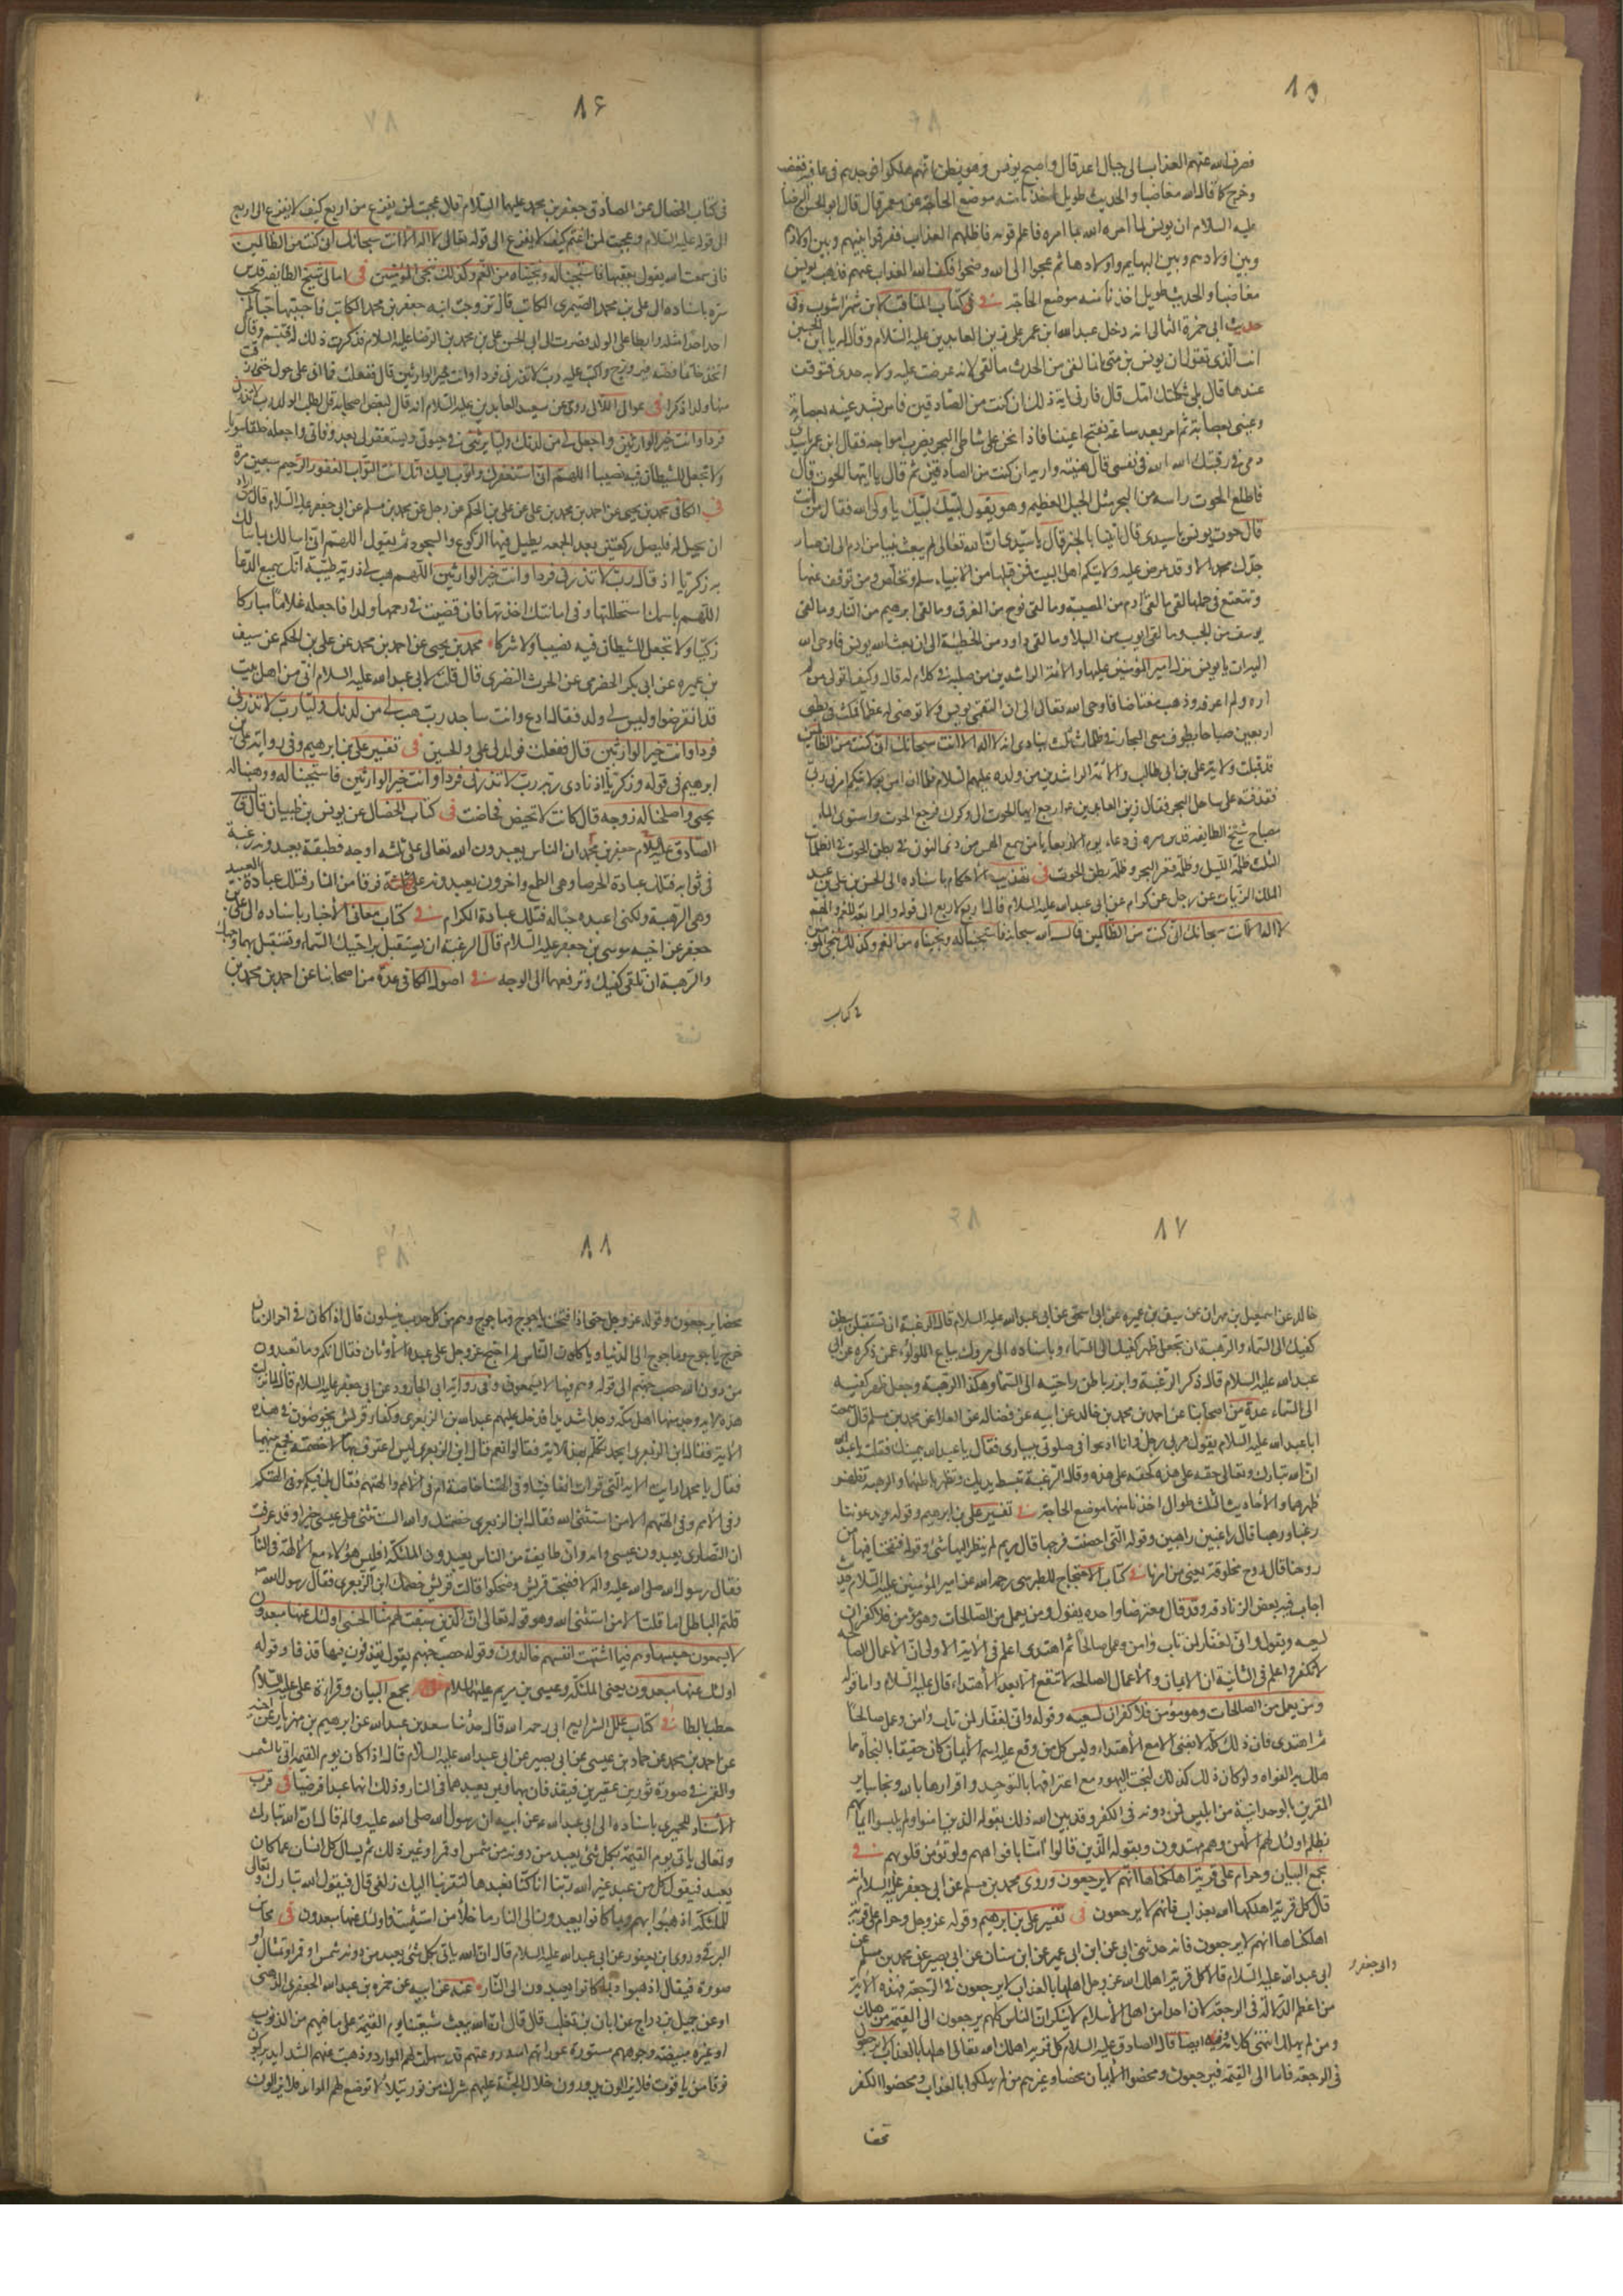 ٨٥
فصرف الله عنهم العذاب الى جبال اعد قال واصبح يونس وهو يظن انهم هلكوا فوجدهم فى عافية فغضب
وخرج كما قال الله مغاضبا والحديث طويل اخذنا منه موضع الحاجة عن معمر قال قال ابو الحسن الرضا
عليه السلام ان يونس لما امره الله بما امره فاعلم قومه فاظلهم العذاب ففرقوا بينهم وبين اولادهم
وبين اولادهم وبين البهايم واولادها ثم عجوا الى الله وضجوا فكف الله العذاب عنهم فذهب يونس
مغاضبا والحديث طويل اخذنا منه موضع الحاجة فى كتاب المناقب لابن شهر اشوب وفى
حديث ابى حمزة الثمالى انه دخل عبد الله بن عمر على زين العابدين عليه السلام وقال له يا ابن الحسين
انت الذى تقول ان يونس بن متى انما لقى من الحوت ما لقى لانه عرضت عليه ولاية جدى فتوقف
عندها قال بلى ثكلتك امك قال فارنى اية ذلك ان كنت من الصادقين فامر بشد عينيه بعصابة
وعينى بعصابة ثم امر بعد ساعة بفتح اعيننا فاذا نحن على شاطى البحر يضرب امواجه فقال ابن عمر يا سيدى
دمى فى رقبتك الله الله فى نفسى قال هنيئة واريه ان كنت من الصادقين ثم قال يا ايتها الحوت قال
فاطلع الحوت راسه من البحر مثل الجبل العظيم وهو يقول لبيك لبيك يا ولى الله فقال من انت
قال حوت يونس يا سيدى قال انبئنا بالخبر قال يا سيدى ان الله تعالى لم يبعث نبيا من ادم الى ان صار
جدك محمد الا وقد عرض عليه ولايتكم اهل البيت فمن قبلها من الانبياء سلم وتخلص ومن توقف عنها
وتتعتع فى حملها لقى ما لقى ادم من المصيبة وما لقى نوح من الغرق وما لقى ابرهيم من النار وما لقى
يوسف من الجب وما لقى ايوب من البلاء وما لقى داود من الخطيئة الى ان بعث الله يونس فاوحى الله
اليه ان يا يونس تول امير المؤمنين عليا والائمة الراشدين من صلبه فى كلام له قال وكيف اتولى من لم
اره ولم اعرفه وذهب مغتاضا فاوحى الله تعالى الى ان التقمى يونس ولا توهنى له عظما فمكث فى بطنى
اربعين صباحا يطوف معى البحار فى ظلمات ثلث ينادى انه لا اله الا انت سبحانك انى كنت من الظالمين
قد قبلت ولاية على بن ابى طالب والائمة الراشدين من ولده عليهم السلام فلما ان امن بولايتكم امرنى ربى
فقذفته على ساحل البحر فقال زين العابدين عم ارجع ايها الحوت الى وكرك فرجع الحوت واستوى الماء
مصباح شيخ الطايفة قدس سره فى دعاء يوم الاربعاء يا من سمع الهمس من ذى النون فى بطن الحوت فى الظلمات
الثلث ظلمة الليل وظلمة قعر البحر وظلمة بطن الحوت فى تهذيب الاحكام باسناده الى الحسن بن على بن عبد
الملك الزيات عن رجل عن كرام عن ابى عبد الله عليه السلام قال اربع لاربع الى قوله والرابعة للغم والهم
لا اله الا انت سبحانك انى كنت من الظالمين قال الله سبحانه فاستجبنا له ونجيناه من الغم وكذلك ننجى المؤمنين
فى كتاب
٨۶
فى كتاب الخصال عن الصادق جعفر بن محمد عليهما السلام قال عجبت لمن يفزع من اربع كيف لا يفزع الى اربع
الى قوله عليه السلام وعجبت لمن اغتم كيف لا يفزع الى قوله تعالى لا اله الا انت سبحانك انى كنت من الظالمين
فانى سمعت الله يقول بعقبها فاستجبنا له ونجيناه من الغم وكذلك ننجى المؤمنين فى امالى شيخ الطايفة قدس
سره باسناده الى على بن محمد الصيمرى الكاتب قال تزوجت ابنة جعفر بن محمد الكاتب فاحببتها حبا لم يحب
احد احدا مثله وابطا على الولد فصرت الى ابى الحسن على بن محمد بن الرضا عليه السلام فذكرت ذلك له فتبسم وقال
اتخذ خاتما فصه فيروزج واكتب عليه رب لا تذرنى فردا وانت خير الوارثين قال ففعلت فما اتى على حول حتى رزقت
منها ولدا ذكرا فى عوالى اللآلى روى عن سيد العابدين عليه السلام انه قال لبعض اصحابه قل لطلب الولد رب لا تذرنى
فردا وانت خير الوارثين واجعل لى من لدنك وليا يرثنى فى حيوتى ويستغفر لى بعد وفاتى واجعله خلقا سويا
ولا تجعل للشيطان فيه نصيبا اللهم انى استغفرك واتوب اليك انك انت التواب الغفور الرحيم سبعين مرة
فى الكافى محمد بن يحيى عن احمد بن محمد بن على عن على بن الحكم عن رجل عن محمد بن مسلم عن ابى جعفر عليه السلام قال من اراد
ان يحبل له فليصل ركعتين بعد الجمعة يطيل فيهما الركوع والسجود ثم يقول اللهم انى اسالك بما سالك
به زكريا اذ قال رب لا تذرنى فردا وانت خير الوارثين اللهم هب لى ذرية طيبة انك سميع الدعا
اللهم باسمك استحللتها وفى امانتك اخذتها فان قضيت فى رحمها ولدا فاجعله غلاما مباركا
زكيا ولا تجعل للشيطان فيه نصيبا ولا شركا محمد بن يحيى عن احمد بن محمد عن على بن الحكم عن سيف
بن عميره عن ابى بكر الحضرمى عن الحرث النضرى قال قلت لابى عبد الله عليه السلام انى من اهل بيت
قد انقرضوا وليس لى ولد فقال ادع وانت ساجد رب هب لى من لدنك وليا رب لا تذرنى
فردا وانت خير الوارثين قال ففعلت فولد لى على والحسين فى تفسير على بن ابراهيم وفى رواية على بن
ابرهيم فى قوله وزكريا اذ نادى ربه رب لا تذرنى فردا وانت خير الوارثين فاستجبنا له ووهبنا له
يحيى واصلحنا له زوجه قال كانت لا تحيض فحاضت فى كتاب الخصال عن يونس بن ظبيان قال قال
الصادق عليه السلام جعفر بن محمد ان الناس يعبدون الله تعالى على ثلثة اوجه فطبقة يعبدونه رغبة
فى ثوابه فتلك عبادة الحرصا وهى الطمع واخرون يعبدونه فرقا من النار فتلك عبادة العبيد
وهى الرهبة ولكنى اعبده حبا له فتلك عبادة الكرام فى كتاب معانى الاخبار باسناده الى على بن
جعفر عن اخيه موسى بن جعفر عليه السلام قال الرغبة ان يستقبل براحتيك السماء وتستقبل بهما وجهك
والرهبة ان تلقى كفيك وترفعهما الى الوجه فى اصول الكافى عدة من اصحابنا عن احمد بن محمد بن
٨٧
خالد عن اسمعيل بن مهران عن سيف بن عميره عن ابى اسحق عن ابى عبد الله عليه السلام قال الرغبة ان تستقبل ببطن
كفيك الى السماء والرهبة ان تجعل ظهر كفيك الى السماء وباسناده الى مروك بياع اللولوء عمن ذكره عن ابى
عبد الله عليه السلام قال ذكر الرغبة وابرز باطن راحتيه الى السماء وهكذا الرهبة وجعل ظهر كفيه
الى السماء عدة من اصحابنا عن احمد بن محمد بن خالد عن ابيه عن فضاله عن العلا عن محمد بن مسلم قال سمعت
ابا عبد الله عليه السلام يقول مر بى رجل وانا ادعو فى صلوتى بيسارى فقال يا عبد الله بيمينك فقلت يا عبد الله
ان لله تبارك وتعالى حقه على هذه كحقه على هذه وقال الرغبة تبسط يديك وتظهر باطنهما والرهبة تظهر
ظهرهما والاحاديث الثلث طوال اخذنا منها موضع الحاجة فى تفسير على بن ابرهيم وقوله ويدعوننا
رغبا ورهبا قال راغبين راهبين وقوله التى احصنت فرجها قال مريم لم ينظر اليها شئ وقوله فنفخنا فيها من
روحنا قال روح مخلوقة يعنى من امرنا فى كتاب الاحتجاج للطبرسى رحمه الله عن امير المؤمنين عليه السلام حديث
اجاب فيه بعض الزنادقة وقد قال معترضا واجده يقول ومن يعمل من الصالحات وهو مؤمن فلا كفران
لسعيه ويقول وانى لغفار لمن تاب وامن وعمل صالحا ثم اهتدى اعلم فى الاية الاولى ان الاعمال الصالحه
لا تكفر واعلم فى الثانية ان الايمان والاعمال الصالحه لا تنفع الا بعد الاهتداء قال عليه السلام واما قوله
ومن يعمل من الصالحات وهو مؤمن فلا كفران لسعيه وقوله وانى لغفار لمن تاب وامن وعمل صالحا
ثم اهتدى فان ذلك كله لا يغنى الا مع الاهتداء وليس كل من وقع عليه اسم الايمان كان حقيقا بالنجاة مما
هلك به الغواه ولو كان ذلك كذلك لنجت اليهود مع اعترافها بالتوحيد واقرارها بالله ونجا ساير
المقرين بالوحدانية من ابليس فمن دونه فى الكفر وقد بين الله ذلك بقوله الذين امنوا ولم يلبسوا ايمانهم
بظلم اولئك لهم الامن وهم مهتدون وبقوله الذين قالوا امنا بافواههم ولم تؤمن قلوبهم فى
مجمع البيان وحرام على قرية اهلكناها انهم لا يرجعون وروى محمد بن مسلم عن ابى جعفر عليه السلام انه
قال كل قرية اهلكها الله بعذاب فانهم لا يرجعون فى تفسير على بن ابرهيم وقوله عز وجل وحرام على قرية
اهلكناها انهم لا يرجعون فانه حدثنى ابى عن ابن ابى عمير عن ابن سنان عن ابى بصير عن محمد بن مسلم عن
ابى عبد الله عليه السلام قالا كل قرية اهلك الله عز وجل اهلها بالعذاب لا يرجعون فى الرجعة فهذه الاية
وابى جعفر
من اعظم الدلالة فى الرجعة لان احدا من اهل الاسلام لا ينكر ان الناس كلهم يرجعون الى القيمة من هلك
ومن لم يهلك انتهى كلامه وفيه ايضا قال الصادق عليه السلام كل قرية اهلك الله تعالى اهلها بالعذاب لا يرجعون
فى الرجعة فاما الى القيمة فيرجعون ومحضوا الايمان محضا وغيرهم ممن لم يهلكوا بالعذاب ومحضوا الكفر
محضا
٨٨
محضا يرجعون وقوله عز وجل حتى اذا فتحت ياجوج وماجوج وهم من كل حدب ينسلون قال اذا كان فى اخر الزمان
خرج ياجوج وماجوج الى الدنيا وياكلون الناس ثم احتج عز وجل على عبدة الاوثان فقال انكم وما تعبدون
من دون الله حصب جهنم الى قوله وهم فيها لا يسمعون وفى رواية ابى الجارود عن ابى جعفر عليه السلام قال لما نزلت
هذه الاية وجد منها اهل مكة وجدا شديدا فدخل عليهم عبد الله بن الزبعرى وكفار قريش يخوضون فى هذه
الاية فقال ابن الزبعرى امحمد تكلم بهذه الاية فقالوا نعم قال ابن الزبعرى لئن اعترف بها لاخصمنه فجمع بينهما
فقال يا محمد ارايت الاية التى قرات انفا فينا وفى الهتنا خاصة ام فى الامم والهتهم فقال بل فيكم وفى الهتكم
وفى الامم وفى الهتهم الا من استثنى الله فقال ابن الزبعرى خصمتك والله الست تثنى على عيسى خيرا وقد عرفت
ان النصارى يعبدون عيسى وامه وان طايفة من الناس يعبدون الملئكة افليس هؤلاء مع الالهة فى النار
فقال رسول الله صلى الله عليه واله لا فضجت قريش وضحكوا قالت قريش خصمك ابن الزبعرى فقال رسول الله
قلتم الباطل اما قلت الا من استثنى الله وهو قوله تعالى ان الذين سبقت لهم منا الحسنى اولئك عنها مبعدون
لا يسمعون حسيسها وهم فيما اشتهت انفسهم خالدون وقوله حصب جهنم يقول يقذفون فيها قذفا وقوله
اولئك عنها مبعدون يعنى الملئكة وعيسى بن مريم عليهما السلام مجمع البيان وقراءة على عليه السلام
حطب بالطا فى كتاب علل الشرايع ابى رحمه الله قال حدثنا سعد بن عبد الله عن ابرهيم بن مهزيار عن اخيه
عن احمد بن محمد عن حماد بن عيسى عن ابى بصير عن ابى عبد الله عليه السلام قال اذا كان يوم القيمة اتى بالشمس
والقمر فى صورة ثورين عقيرين فيقذفان بهما وبمن يعبدهما فى النار وذلك انهما عبدا فرضيا فى قرب
الاسناد للحميرى باسناده الى ابى عبد الله عن ابيه ان رسول الله صلى الله عليه واله قال ان الله تبارك
وتعالى ياتى يوم القيمة بكل شئ يعبد من دونه من شمس او قمر او غير ذلك ثم يسال كل انسان عما كان
يعبد فيقول كل من عبد غير الله ربنا انا كنا نعبدها لتقربنا اليك زلفى قال فيقول الله تبارك وتعالى
للملئكة اذهبوا بهم وبما كانوا يعبدون الى النار ما خلا من استثنيت فاولئك عنها مبعدون فى محاسن
البرقى وروى ابن يعفور عن ابى عبد الله عليه السلام قال ان الله ياتى بكل شئ يعبد من دونه شمس او قمر او تمثال او
صورة فيقال اذهبوا بهم وبما كانوا يعبدون الى النار عنه عن ابيه عن حمزه بن عبد الله الجعفرى الدهنى
او عن جميل بن دراج عن ابان بن تغلب قال قال ان الله يبعث شيعتنا يوم القيمة على ما فيهم من الذنوب
او غيره مبيضة وجوههم مستورة عوراتهم امنة روعتهم قد سهلت لهم الموارد وذهبت عنهم الشدايد يركبون
نوقا من ياقوت فلا يزالون يدورون خلال الجنة عليهم شرك من نور يتلالا توضع لهم الموائد فلا يزالون